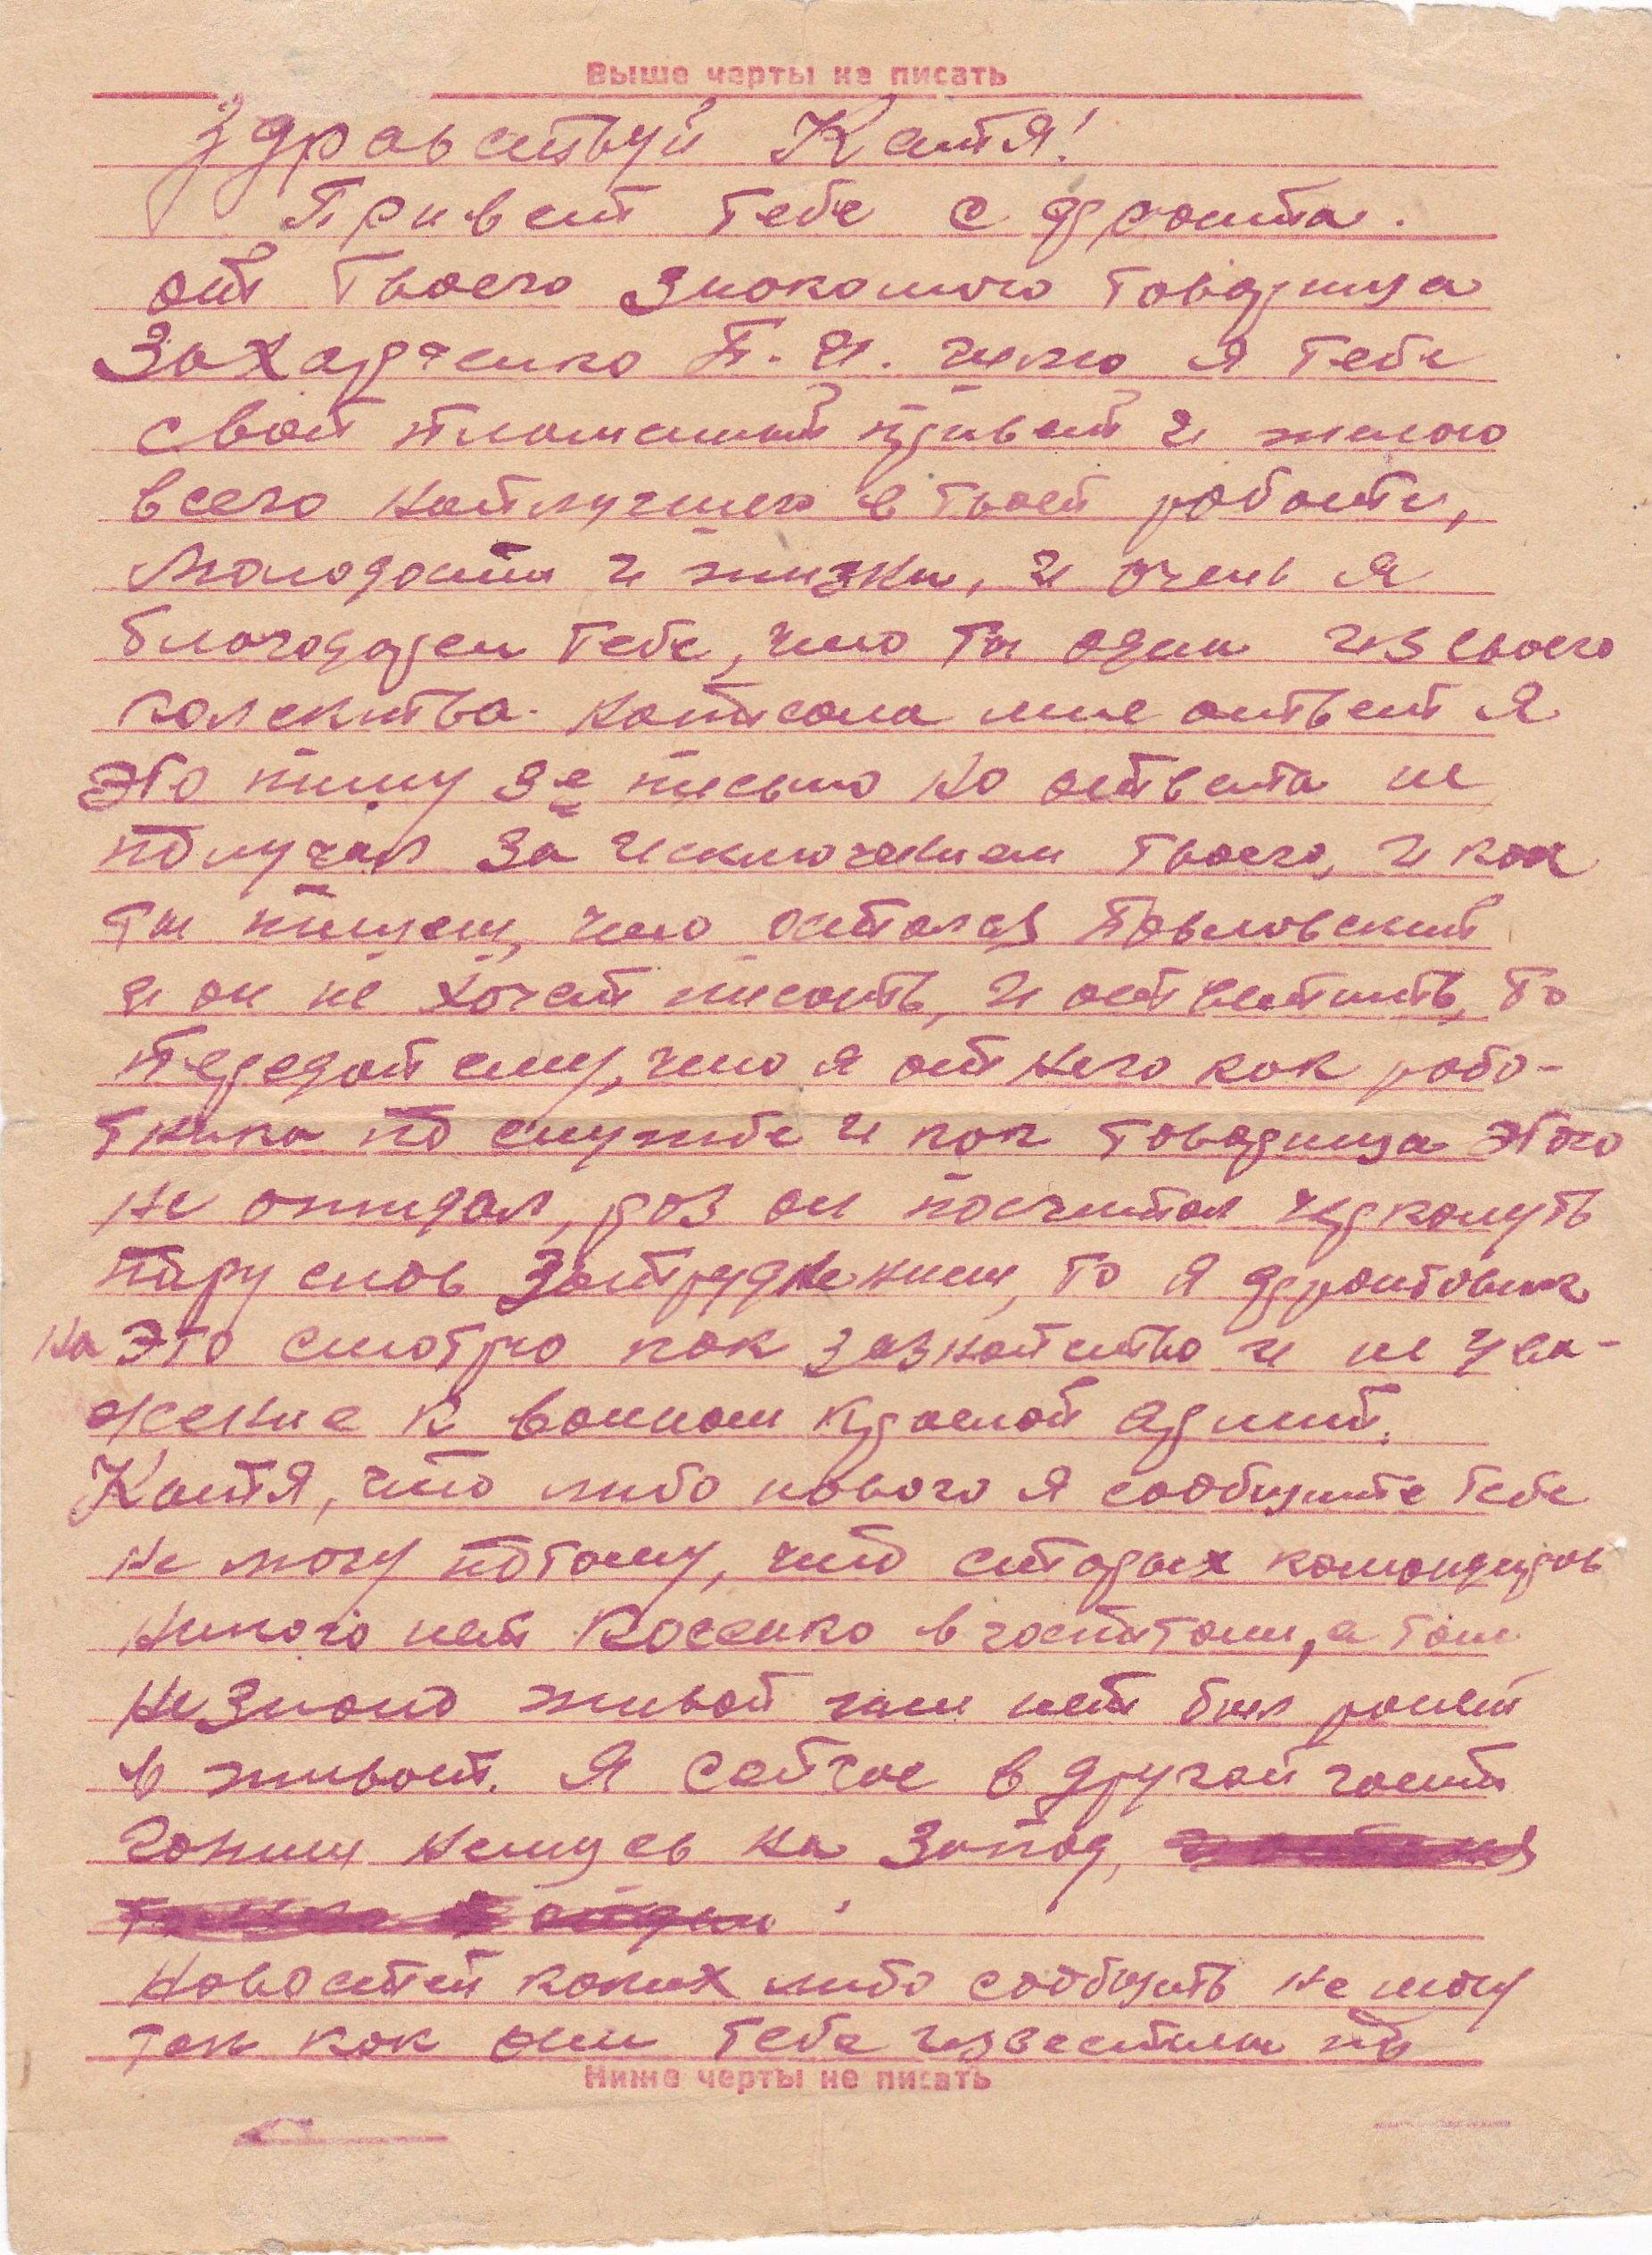 Выше черты не писать
Здравствуй Катя!
Привет тебе с фронта.
от твоего знакомого товарища
Захарченко П. И. шлю я тебе
свой пламенный привет и желаю
всего наилучшего в твоей работе,
молодости и жизни, и очень я
благодарен тебе, что ты один из своего
колектива написала мне ответ я
это пишу 3-е письмо но ответа не
получал за исключением твоего, и как
ты пишеш, что остался Павловский
и он не хочет писать, и ответить, то
передай ему, что я от него как рабо-
тника по службе и как товарища этого
не ожидал, раз он посчитал черкануть
пару слов затруднением, то я фронтовик
на это смотрю как зазнайство и не ува-
жение к воинам красной армий.
Катя, что либо нового я сообщите тебе
не могу потому, что старых командиров
никого нет Косенко в госпитали, а там
не знаю живой чи нет был ранен
в живот. Я сейчас в другой части
гоним немцев на запад,
Новостей каких либо сообщить не могу
так как они тебе известны по
Ниже черты не писать